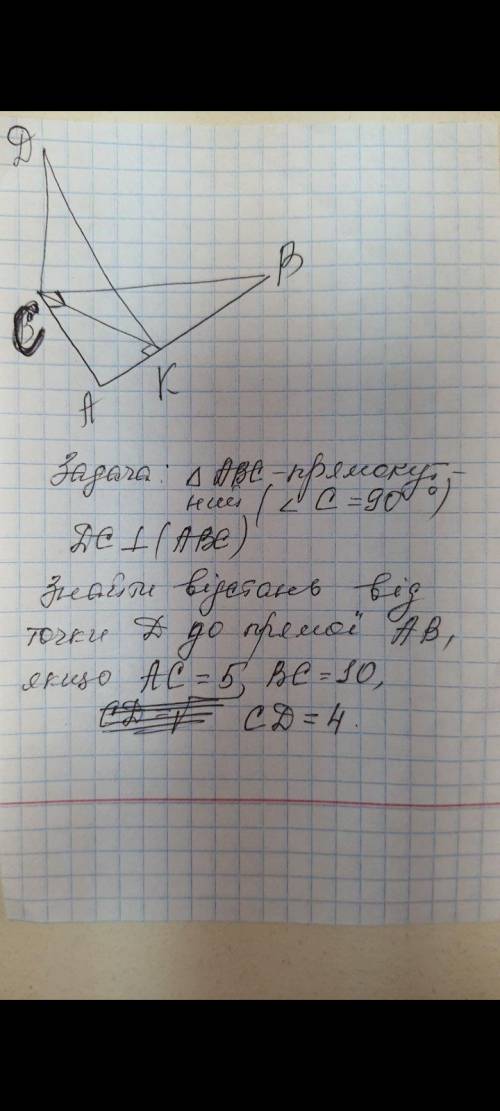 D
B
C
K
A
Задача: △ ABC - прямокут-
ний (∠ C = 90°)
DC ⊥ (ABC)
Знайти відстань від
точки D до прямої AB,
якщо AC = 5, BC = 10,
CD = √ CD = 4.